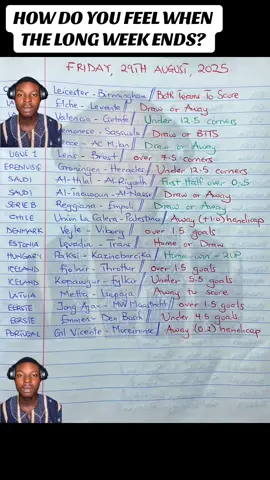 HOW DO YOU FEEL WHEN
THE LONG WEEK ENDS?
FRIDAY, 29TH AUGUST, 2025
Leicester - Birmingham / Both Teams To Score
LA Elche - Levante / Draw or Away
LA Valencia - Getafe / Under 12.5 corners
Cremonese - Sassuolo / Draw or BTTS
Lecce - AC Milan / Draw or Away
LIGUE 1 Lens - Brest / over 7.5 corners
EREDIVISIE Groningen - Heracles / Under 12.5 corners
SAUDI Al-Hilal - Al-Riyadh / First Half over 0.5
SAUDI Al-Taawoun - Al-Nassr / Draw or Away
SERIE B Reggiana - Empoli / Draw or Away
CHILE Union La Calera - Palestino / Away (+1:0) handicap
DENMARK Vejle - Viborg / over 1.5 goals
ESTONIA Levadia - Trans / Home or Draw
HUNGARY Paksi - Kazincbarcika / Home win - 2UP
ICELAND Fjolnir - Throttur / over 1.5 goals
ICELAND Kopavogur - Fylkir / Under 5.5 goals
LATVIA Metta - Liepaja / Away to score
EERSTE Jong Ajax - MVV Maastricht / over 1.5 goals
EERSTE Emmen - Den Bosch / Under 4.5 goals
PORTUGAL Gil Vicente - Moreirense / Away (0:2) handicap